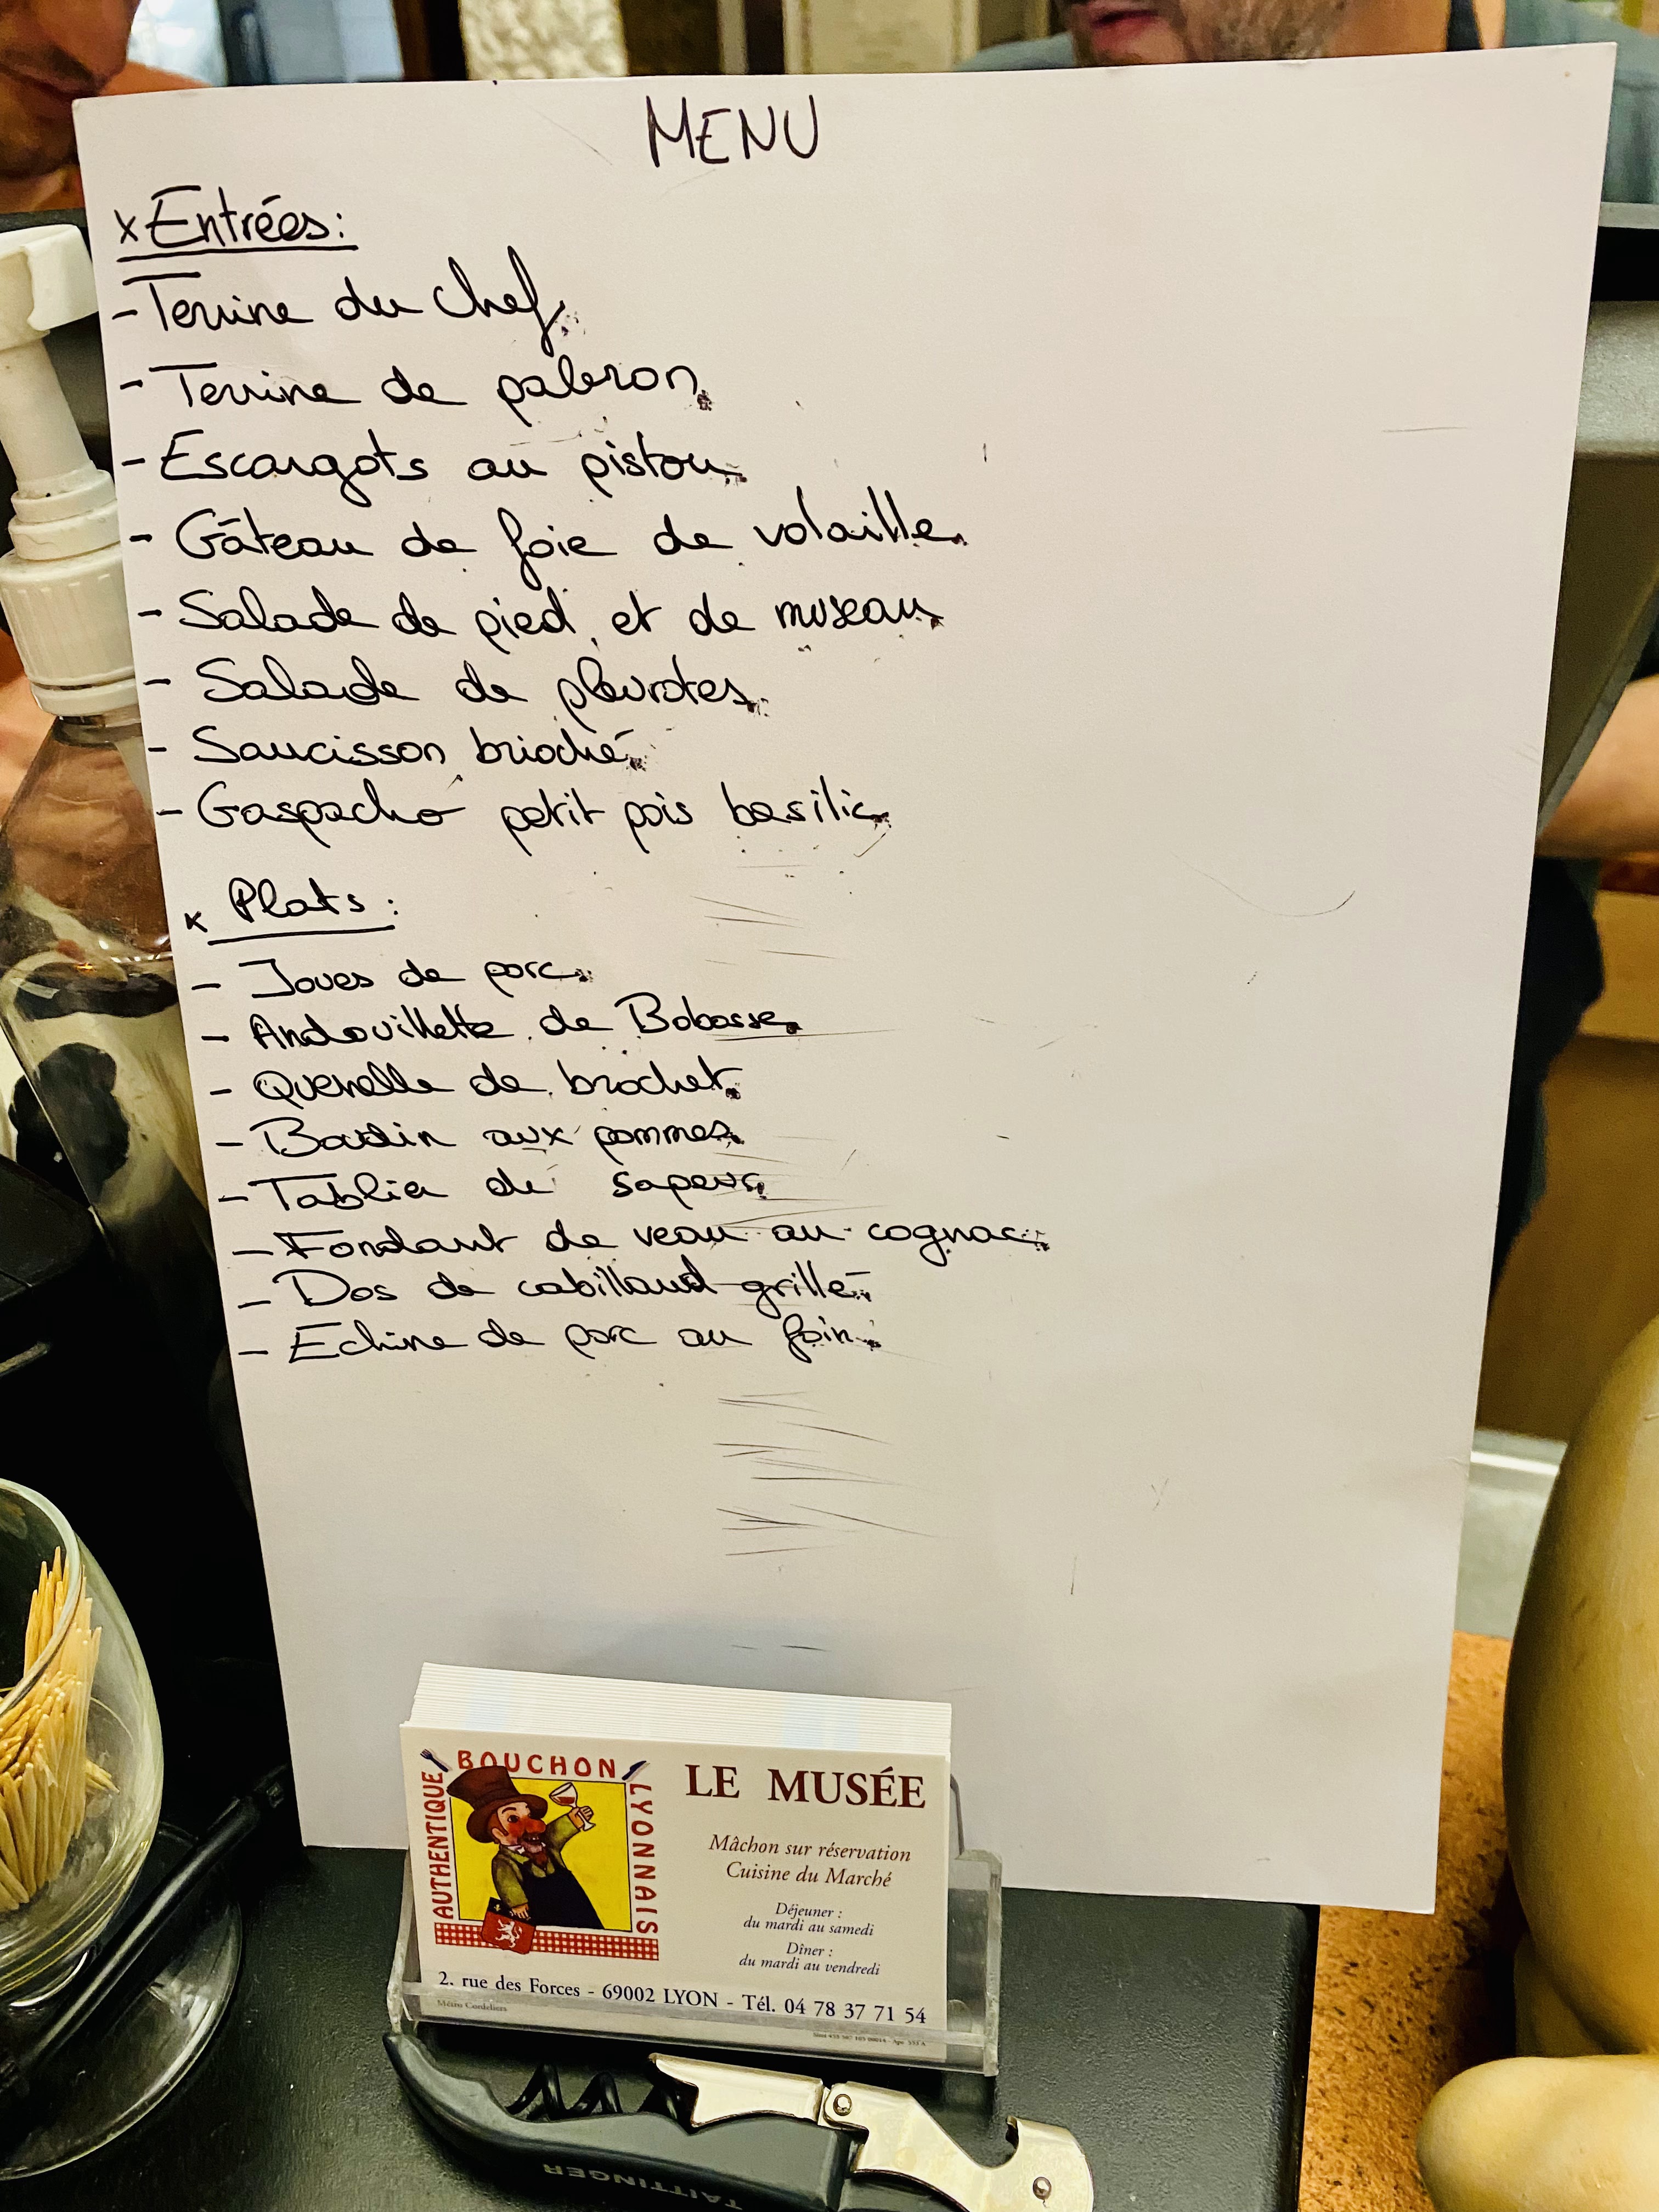 MENU
x Entrées:
- Terrine du chef
- Terrine de paleron
- Escargots au pistou
- Gâteau de foie de volaille
- Salade de pied et de museau
- Salade de pleurotes
- Saucisson brioché
- Gaspacho petit pois basilic
x Plats:
- Joues de porc
- Andouillette de Bobosse
- Quenelle de brochet
- Boudin aux pommes
- Tablier de sapeur
- Fondant de veau au cognac
- Dos de cabillaud grillé
- Echine de porc au foin
AUTHENTIQUE BOUCHON LYONNAIS
LE MUSÉE
Mâchon sur réservation
Cuisine du Marché
Déjeuner :
du mardi au samedi
Dîner :
du mardi au vendredi
2. rue des Forces - 69002 LYON - Tél. 04 78 37 71 54
Métro Cordeliers
TAITTINGER